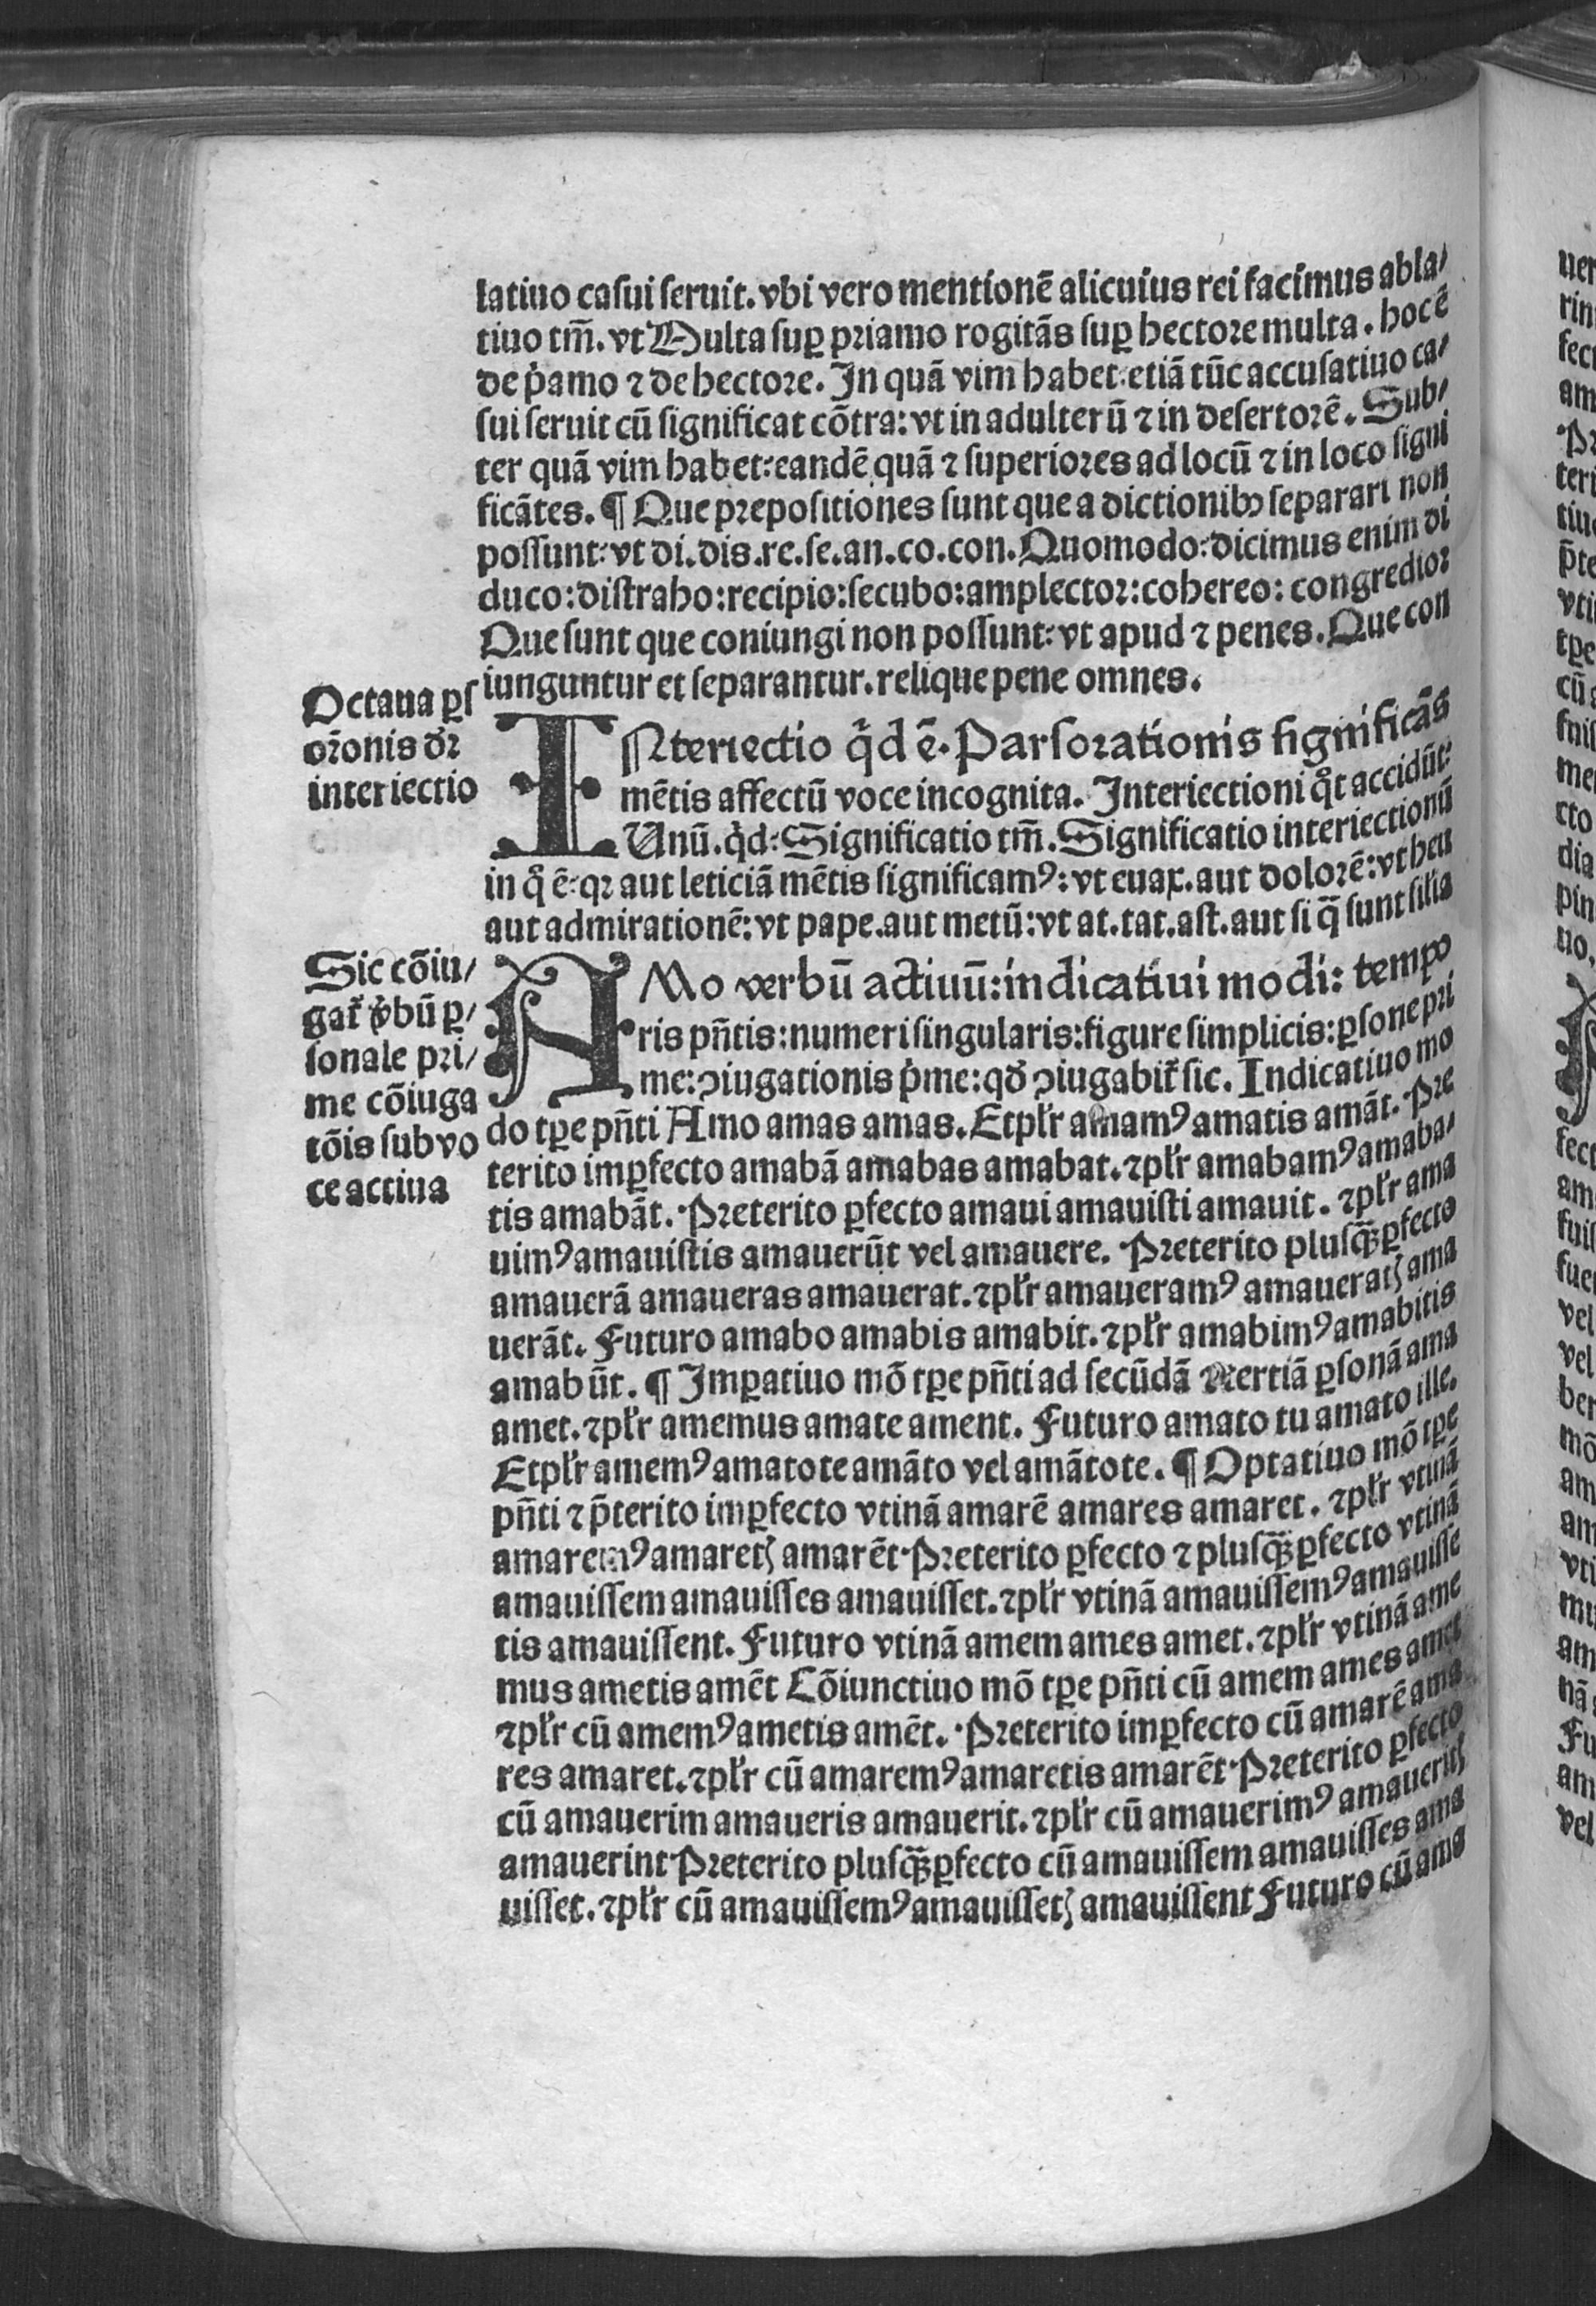 latiuo casui seruit. vbi vero mentionē alicuius rei facimus abla/
tiuo tm̄. vt Multa suꝑ priamo rogitās suꝑ hectore multa. hoc ē
de p̍amo ⁊ de hectore. In quā vim habet: etiā tūc accusatiuo ca/
sui seruit cū significat cōtra: vt in adulterū ⁊ in desertorē. Sub/
ter quā vim habet: eandē quā ⁊ superiores ad locū ⁊ in loco signi
ficātes. ¶ Que prepositiones sunt que a dictionibꝰ separari non
possunt: vt di. dis. re. se. an. co. con. Quomodo: dicimus enim di
duco: distraho: recipio: secubo: amplector: cohereo: congredior
Que sunt que coniungi non possunt: vt apud ⁊ penes. Que con
iunguntur et separantur. relique pene omnes.
Octaua ꝑs
or̄onis dr̄
interiectio
INteriectio qͥd ē. Pars orationis significās
mētis affectū voce incognita. Interiectioni qͦt accidūt:
Unū. qͥd: Significatio tm̄. Significatio interiectionū
in qͦ ē: qꝛ aut leticiā mētis significamꝰ: vt euax. aut dolorē: vt heu
aut admirationē: vt pape. aut metū: vt at. tat. ast. aut si q̄ sunt silia
Sic cōiu/
gat᷑ v̍bū ꝑ/
sonale pri/
me cōiuga
tōis sub vo
ce actiua
AMo verbū actiuū: indicatiui modi: tempo
ris pn̄tis: numeri singularis: figure simplicis: ꝑsone pri
me: ꝯiugationis p̍me: qd̄ ꝯiugabit᷑ sic. Indicatiuo mo
do tꝑe pn̄ti Amo amas amas. Et pl̄r amamꝰ amatis amāt. Pre
terito imꝑfecto amabā amabas amabat. ⁊ pl̄r amabamꝰ amaba/
tis amabāt. Preterito ꝑfecto amaui amauisti amauit. ⁊ pl̄r ama
uimꝰ amauistis amauerūt vel amauere. Preterito plusq̄ꝫꝑfecto
amauerā amaueras amauerat. ⁊ pl̄r amaueramꝰ amaueratꝭ ama
uerāt. Futuro amabo amabis amabit. ⁊ pl̄r amabimꝰ amabitis
amabūt. ¶ Imꝑatiuo mō tꝑe pn̄ti ad secūdā ⁊ tertiā ꝑsonā ama
amet. ⁊ pl̄r amemus amate ament. Futuro amato tu amato ille.
Et pl̄r amemꝰ amatote amāto vel amātote. ¶ Optatiuo mō tꝑe
pn̄ti ⁊ p̄terito imꝑfecto vtinā amarē amares amaret. ⁊ pl̄r vtinā
amaremꝰ amaretꝭ amarēt Preterito ꝑfecto ⁊ plusq̄ꝫꝑfecto vtinā
amauissem amauisses amauisset. ⁊ pl̄r vtinā amauissemꝰ amauisse
tis amauissent. Futuro vtinā amem ames amet. ⁊ pl̄r vtinā ame
mus ametis amēt Cōiunctiuo mō tꝑe pn̄ti cū amem ames amet
⁊ pl̄r cū amemꝰ ametis amēt. Preterito imꝑfecto cū amarē ama
res amaret. ⁊ pl̄r cū amaremꝰ amaretis amarēt Preterito ꝑfecto
cū amauerim amaueris amauerit. ⁊ pl̄r cū amauerimꝰ amaueritꝭ
amauerint Preterito plusq̄ꝫꝑfecto cū amauissem amauisses ama
uisset. ⁊ pl̄r cū amauissemꝰ amauissetꝭ amauissent Futuro cū ama